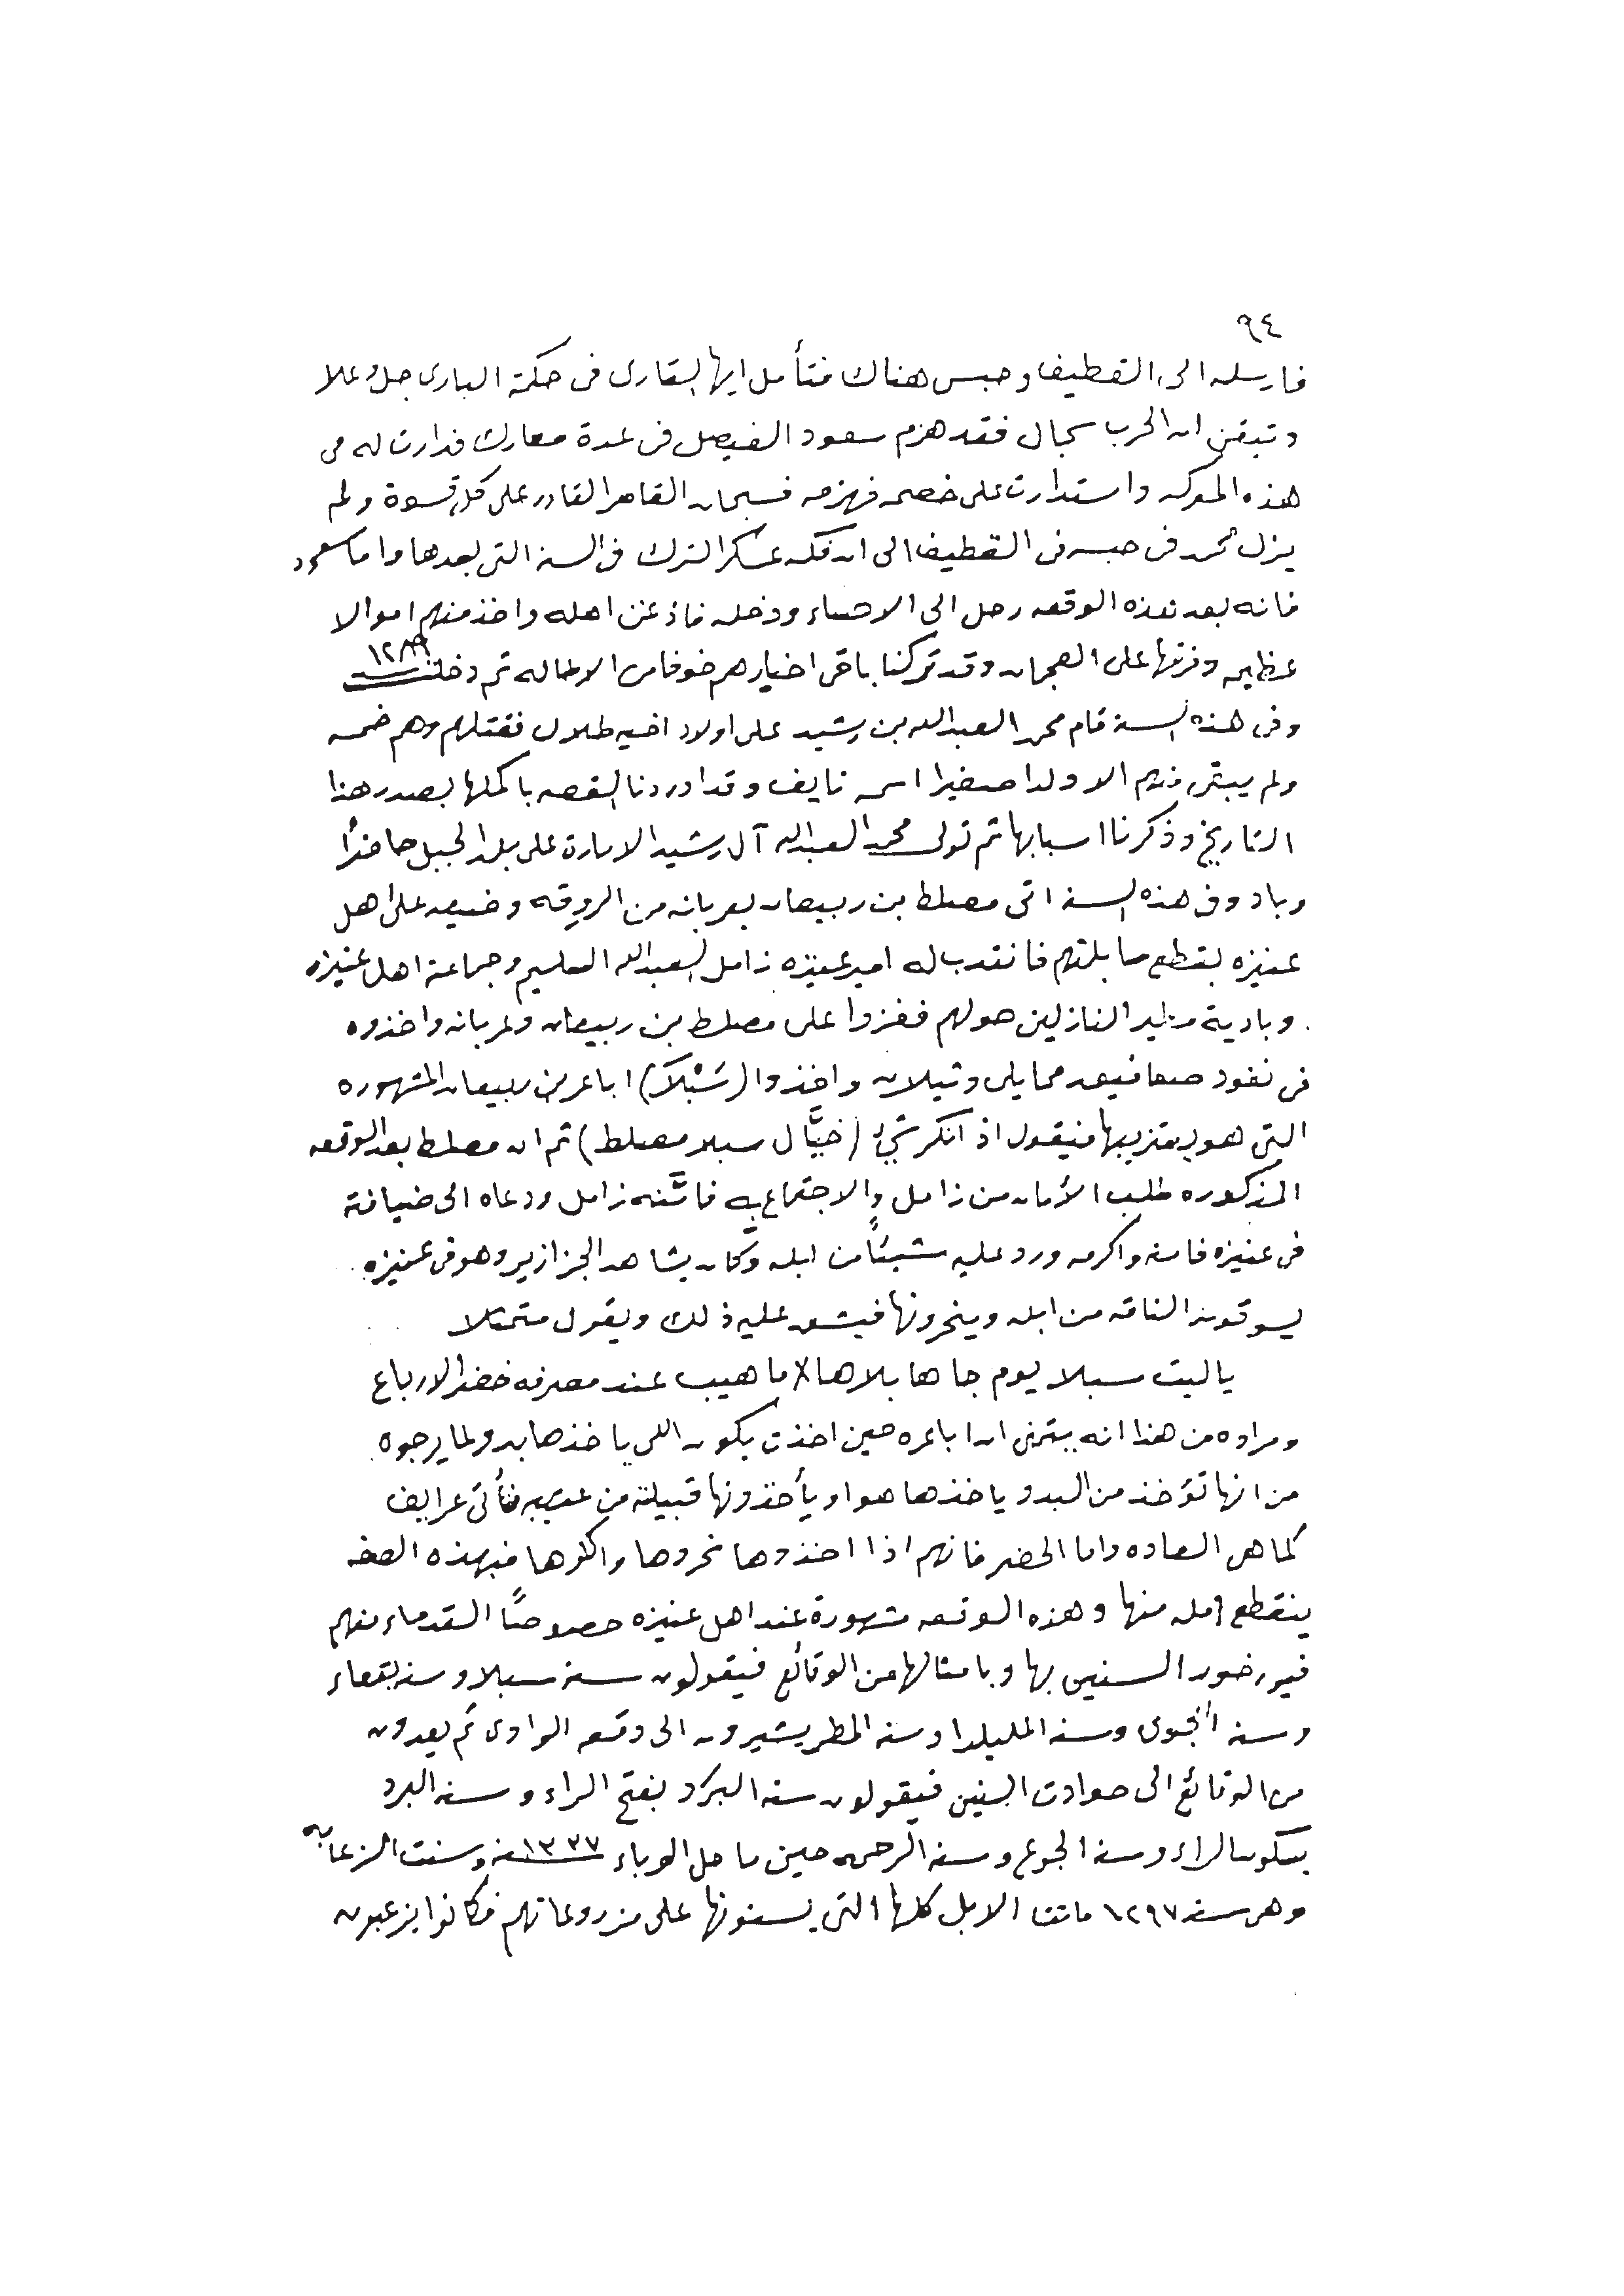 ٩٤
فارسله الى القطيف وحبس هناك فتأمل ايها القارى فى حكمة البارى جل وعلا
وتيقن ان الحرب سجال فقد هزم سعود الفيصل فى عدة معارك فدارت له فى
هذه المعركه واستدارت على خصمه فهزمه فسبحان القاهر القادر على كل قسوة ولم
يزل محمد فى حبسه فى القطيف الى ان فكه عسكر الترك فى السنه التى بعدها واما سعود
فانه بعد هذه الوقعه رحل الى الاحساء ودخله فاذعن اهله واخذ منهم اموالا
عظيمه وفرقها على العجمان وقد تركنا باقى اخبارهم خوفا من الاطاله ثم دخلت سنة ١٢٨٩
وفى هذه السنة قام محمد العبدالله بن رشيد على اولاد اخيه طلال فقتلهم وهم خمسه
ولم يبقى منهم الا ولدا صغيرا اسمه نايف وقد اوردنا القصه باكملها بصدر هذا
التاريخ وذكرنا اسبابها ثم تولى محمد العبدالله آل رشيد الامارة على بلد الجبل حاضرًا
وباد وفى هذه السنة اتى مصلط بن ربيعان بعربانه من الروقه وضيعه على اهل
عنيزه بقطع سابلتهم فانتدب له امير عنيزه زامل العبدالله السليم وجماعة اهل عنيزه
وبادية مطير النازلين حولهم فغزوا على مصلط بن ربيعان وعربانه واخذوه
فى نفود صعافيق مما يلى وثيلان واخذوا (سَبْلَا) اباعر بن ربيعان المشهوره
التى هو يعتزيبها فيقول اذ انكر شيءً (خيَّال سبلا مصلط) ثم ان مصلط بعد الوقعه
المذكوره طلب الأمان من زامل والاجتماع به فامَّنه زامل ودعاه الى ضيافة
فى عنيزه فامنه واكرمه ورد عليه شيئًا من ابله وكان يشاهد الجزازير وهو فى عنيزه
يسوقون الناقه من ابله وينحرونها فيشق عليه ذلك ويقول متمثلا
ياليت سبلا يوم جاها بلاها × ما هيب عند مصرفه خضر الارباع
ومراده من هذا انه يتمنى ان اباعره حين اخذت يكون اللى ياخذها بدو لما يرجوه
من انها تؤخذ من البدو ياخذها هو او يأخذونها قبيلته من عتيبه فتأتى عرايف
كما هى العاده واما الحضر فانهم اذا اخذوها نحروها واكلوها فبهذه الصفه
ينقطع امله منها وهذه الوقعه مشهورة عند اهل عنيزه خصوصًا القدماء منهم
فيورخون السنين بها وبامثالها من الوقائع فيقولون سنة سبلا وسنة بقعاء
وسنة الجوى وسنة المليدا وسنة المطر يشيرون الى وقعه الوادى ثم يعدون
من الوقائع الى حوادث السنين فيقولون سنة البرَد بفتح الراء وسنه البرد
بسكون الراء وسنة الجوع وسنه الرحمه حين ما حل الوباء سنة ١٣٣٧ وسنت الزعابه
وهى سنة ١٢٩٧ ماتت الابل كلها التى يسنونها على مزروعاتهم فكانوا يزعبون